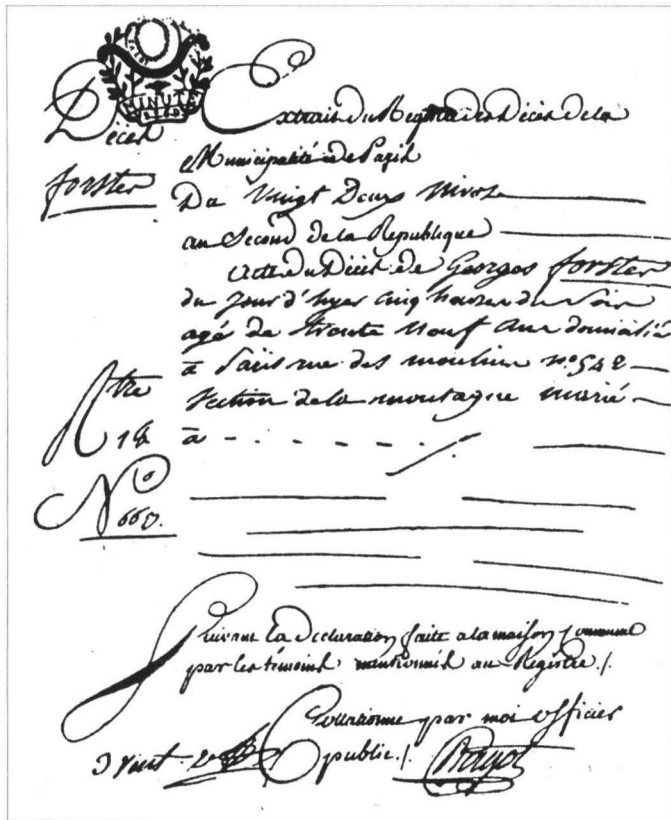 MINUTE
Décès
Extrait du Registre des Décès de la
Municipalité de Paris
forster
Du Vingt Deux Nivose
an Second de la Republique
Acte de Décès de Georges forster
du jour d'hyer cinq heures du Soir
agé de trente Neuf ans domicilié
à Paris rue des moulins n° 542
Section de la montagne marié
à
Rtre
18
N°
660.
Suivant la Declaration faite a la maison Commune
par les témoins mentionnés au Registre /.
Collationné par moi officier
public /.